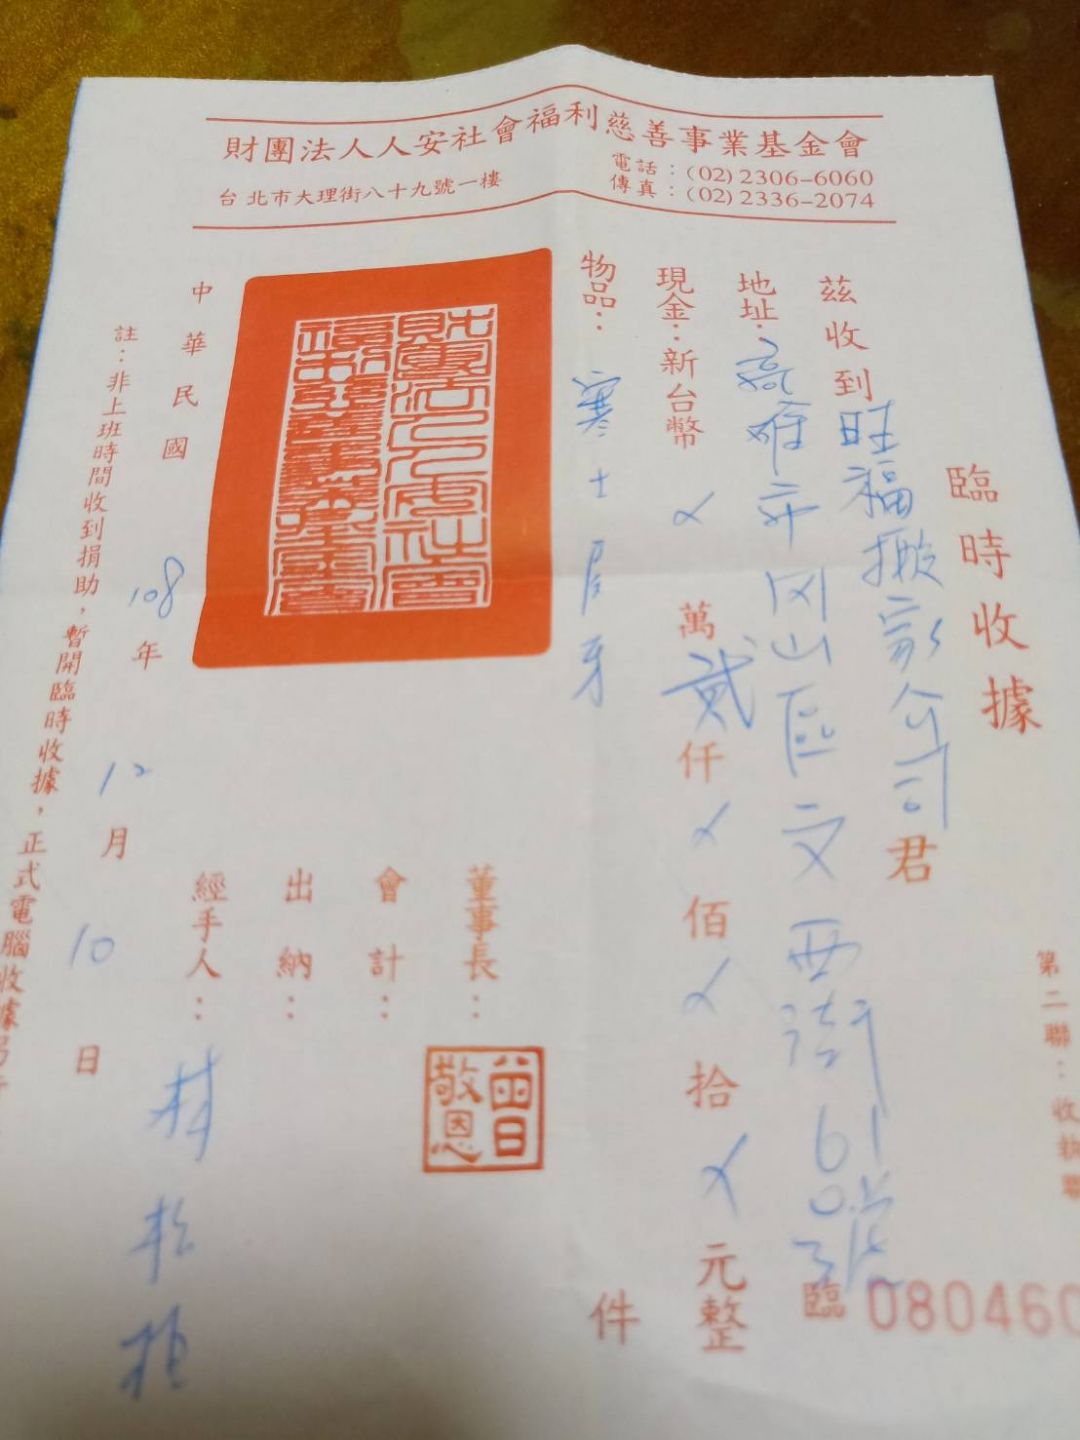 財團法人人安社會福利慈善事業基金會
台北市大理街八十九號一樓
電話：(02)2306-6060
傳真：(02)2336-2074
臨時收據
茲收到旺福搬家公司君
地址：高雄市岡山區文西街61號
現金：新台幣 X 萬 貳 仟 X 佰 X 拾 X 元整
物品：寒士尾牙 件
財團法人人安社會
福利慈善事業基金會
董事長：
曾敬恩
會計：
出納：
經手人：林
中華民國 108 年 12 月 10 日
註：非上班時間收到捐助，暫開臨時收據，正式電腦收據
第二聯：收執聯
臨 080460